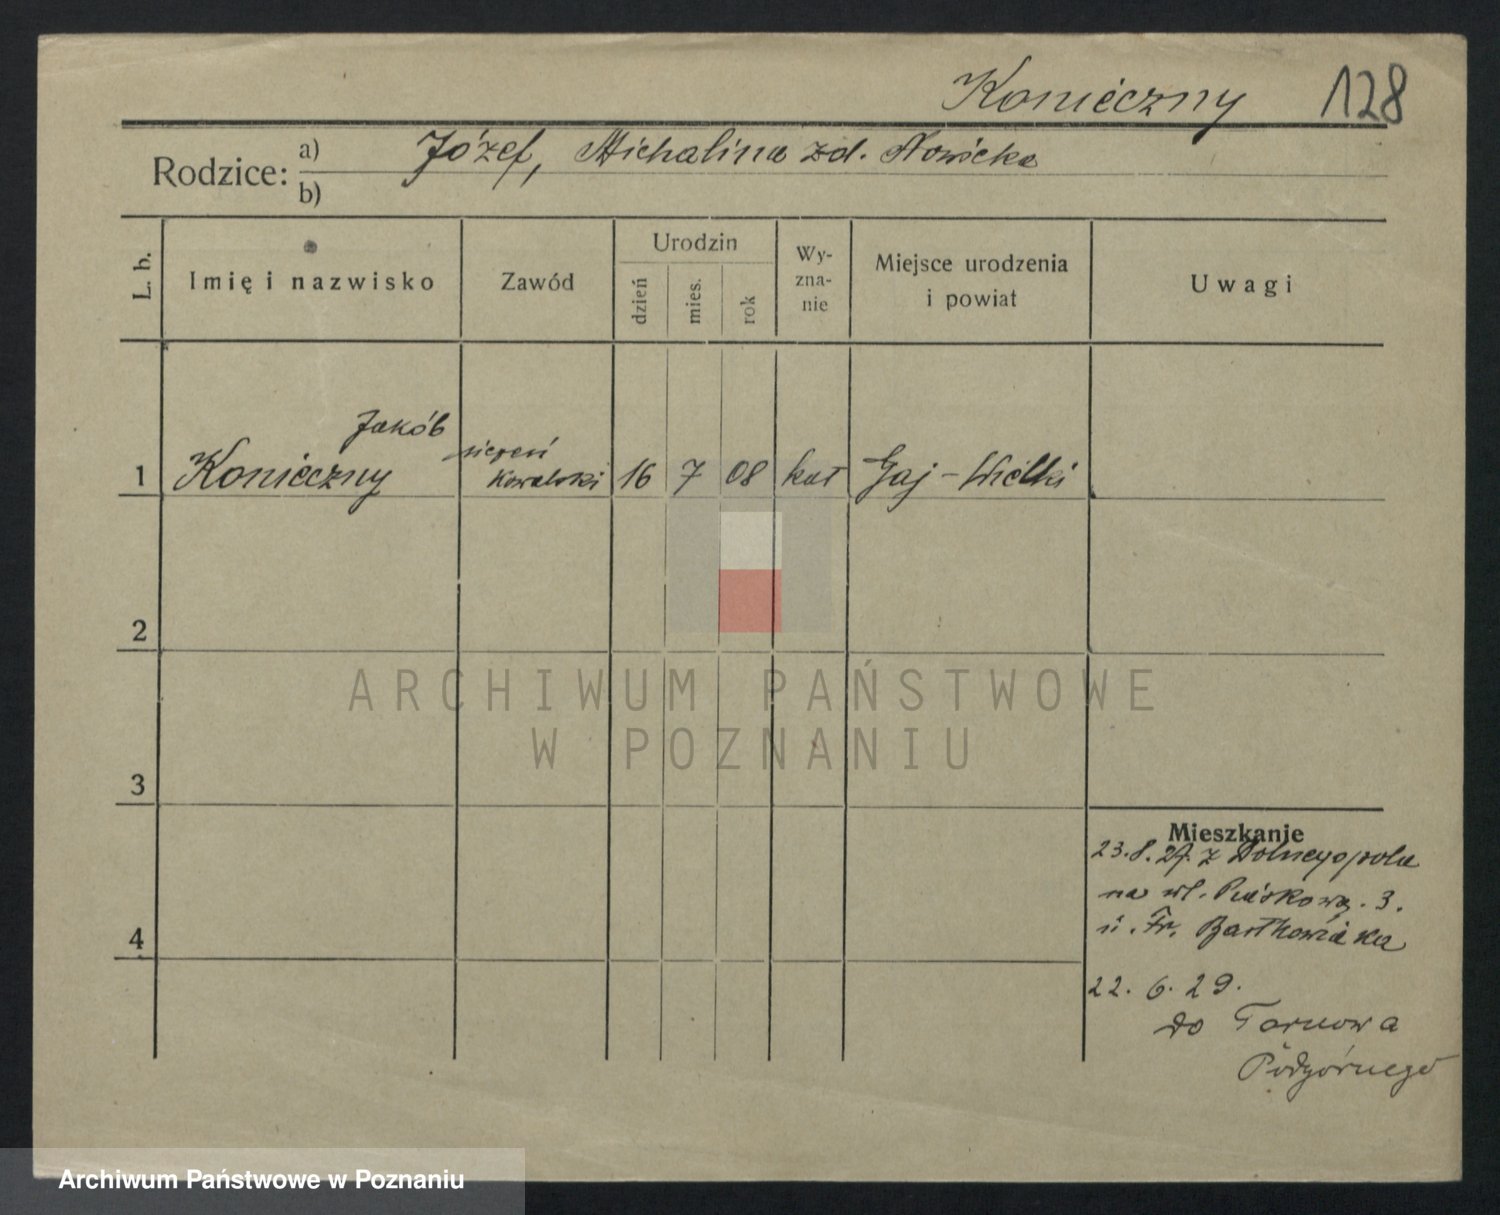 Konieczny 128
Rodzice: a) Józef, Michalina zd. Nowicka
b)
L. b.
Imię i nazwisko
Zawód
Urodzin
dzień
mies.
rok
Wy-
zna-
nie
Miejsce urodzenia
i powiat
Uwagi
Jakób
1 Konieczny
kowalski 16 7 08 kat Gaj-Wielki
2
3
4
Mieszkanie
23.8.27. z
na wł. 3.
u. Fr. Bartkowiaka
22. 6. 29.
do Tarnowa
Podgórnego
ARCHIWUM PAŃSTWOWE
W POZNANIU
Archiwum Państwowe w Poznaniu